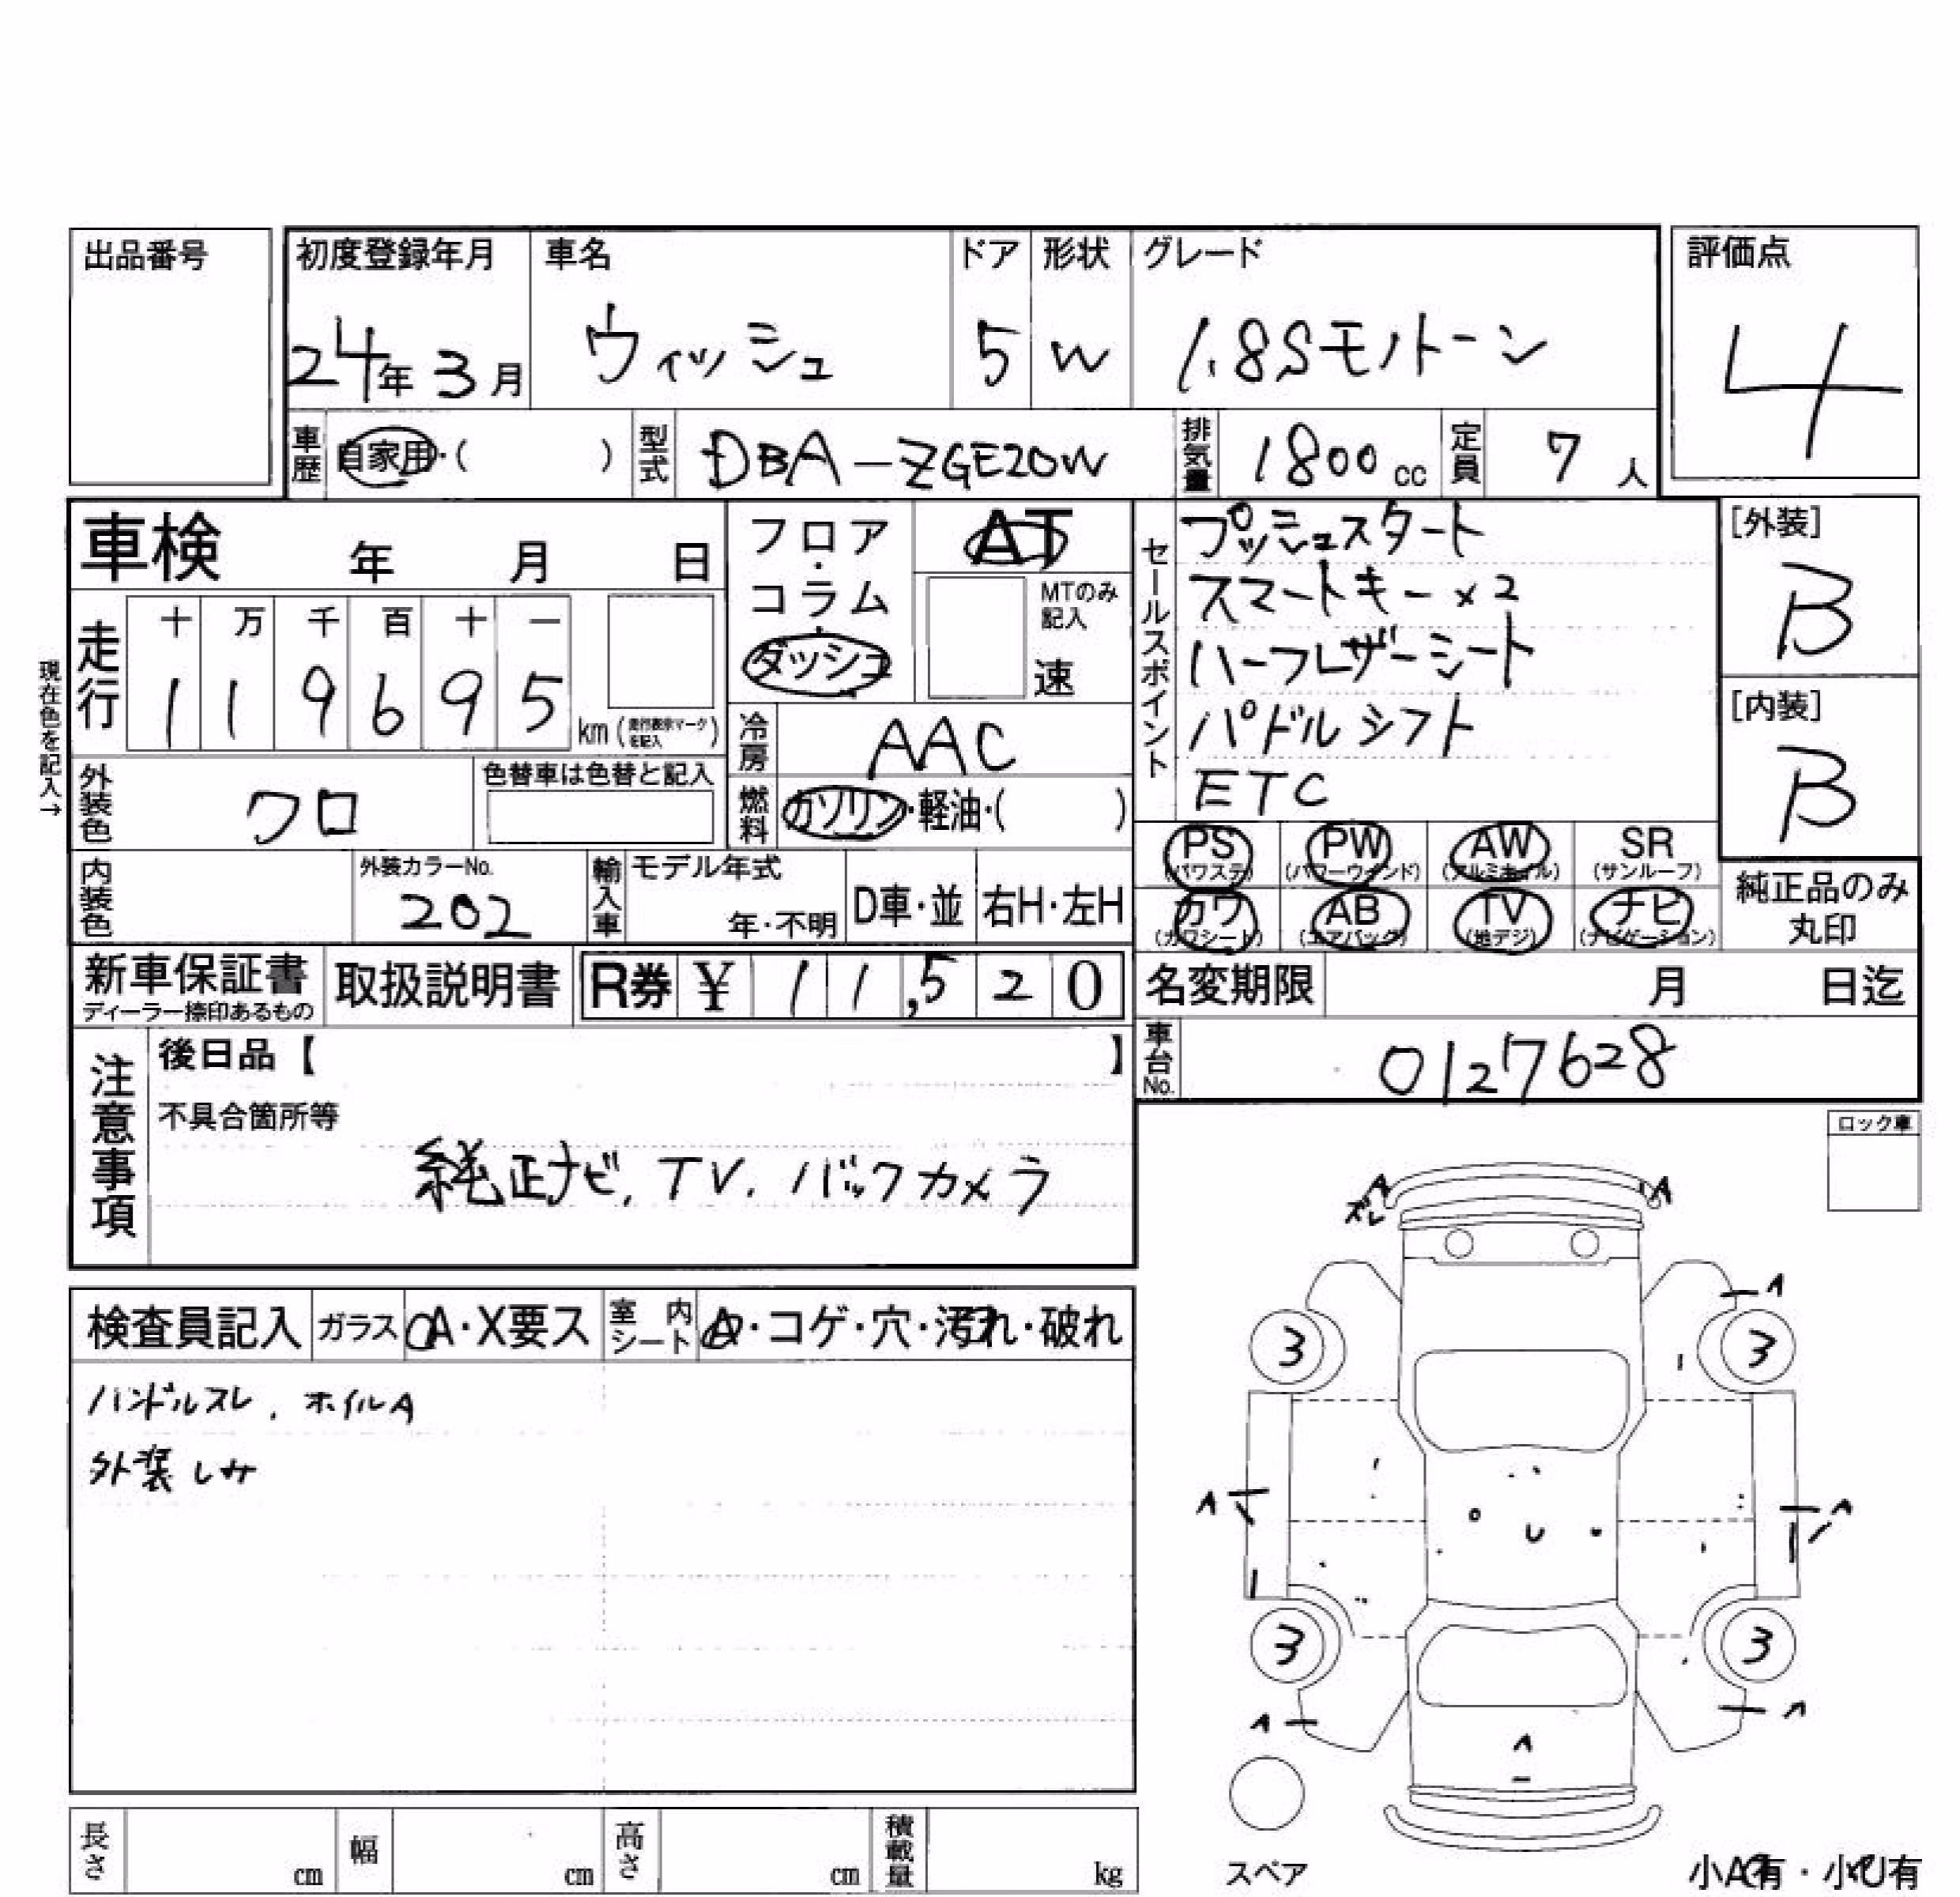 出品番号
初度登録年月
24年 3月
車名
ウィッシュ
ドア
5
形状
W
グレード
1.8Sモノトーン
評価点
4
車歴 自家用・( )
型式 DBA-ZGE20W
排気量 1800cc
定員 7人
車検 年 月 日
フロア・コラム・ダッシュ
AT
MTのみ記入
速
セールスポイント
プッシュスタート
スマートキー×2
ハーフレザーシート
パドルシフト
ETC
[外装]
B
[内装]
B
現在色を記入→
走行
十 万 千 百 十 一
1 1 9 6 9 5 km (走行表示マークを記入)
冷房 AAC
燃料 ガソリン・軽油・( )
外装色 クロ
色替車は色替と記入
内装色
外装カラーNo.
202
輸入車 モデル年式
年・不明
D車・並 右H・左H
PS (パワステ)
PW (パワーウインド)
AW (アルミホイル)
SR (サンルーフ)
カワ (カワシート)
AB (エアバック)
TV (地デジ)
ナビ (ナビゲーション)
純正品のみ
丸印
新車保証書
ディーラー捺印あるもの
取扱説明書
R券 ¥ 11,520
名変期限 月 日迄
車台No. 0127628
注意事項
後日品【 】
不具合箇所等
純正ナビ, TV, バックカメラ
ロック車
検査員記入 ガラス A・X要ス 室内シート A・コゲ・穴・汚れ・破れ
ハンドルスレ, ホイルA
外装しみ
A
ズレ
A
A
3
3
A
A
U
3
3
A
A
A
スペア
長さ cm
幅 cm
高さ cm
積載量 kg
小A有・小U有